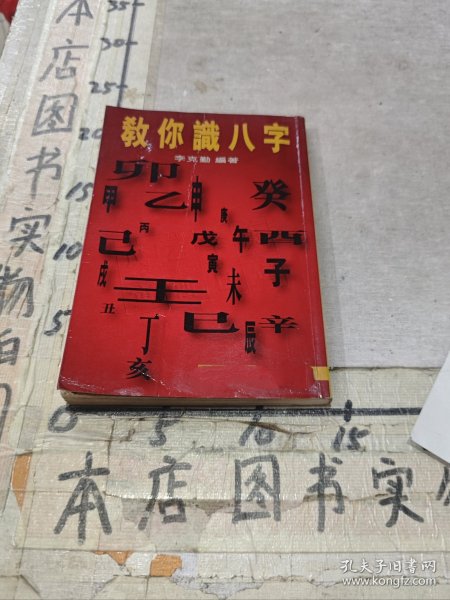 35
30
25
20
15
10
5
本店图书实物
教你識八字
李克勤 編著
卯 甲 癸
甲 乙 庚
丙
己 戊 午 酉
戌 寅 子
壬 未
丑
丁 巳 辰 辛
亥
0 5 10 15
本店图书实
孔夫子旧书网
www.kongfz.com